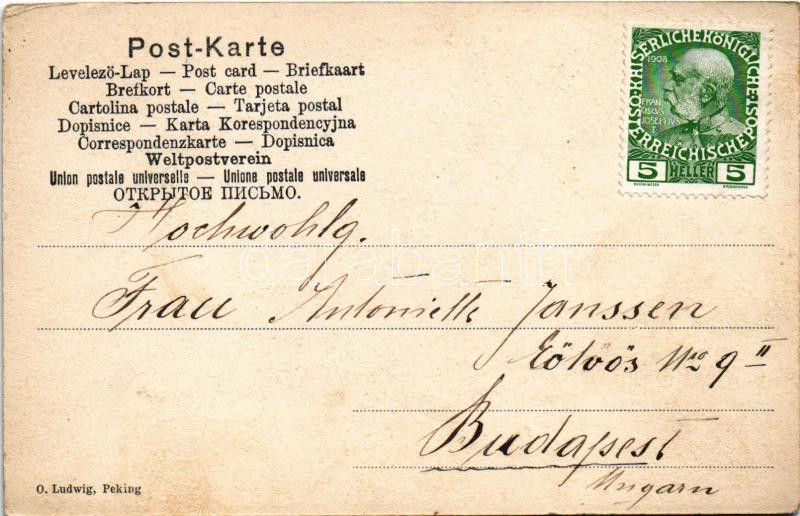 Post-Karte
Levelező-Lap — Post card — Briefkaart
Brefkort — Carte postale
Cartolina postale — Tarjeta postal
Dopisnice — Karta Korespondencyjna
Correspondenzkarte — Dopisnica
Weltpostverein
Union postale universelle — Unione postale universale
ОТКРЫТОЕ ПИСЬМО.
KAISERLICHEKÖNIGLICHE
ÖSTERREICHISCHEPOST
1908
FRAN
CISCUS
JOSEPHUS
I.
5 HELLER 5
Hochwohlg.
Frau Antoniette Janssen
Eötvös
9 II
Budapest
Ungarn
O. Ludwig, Peking
darabanth